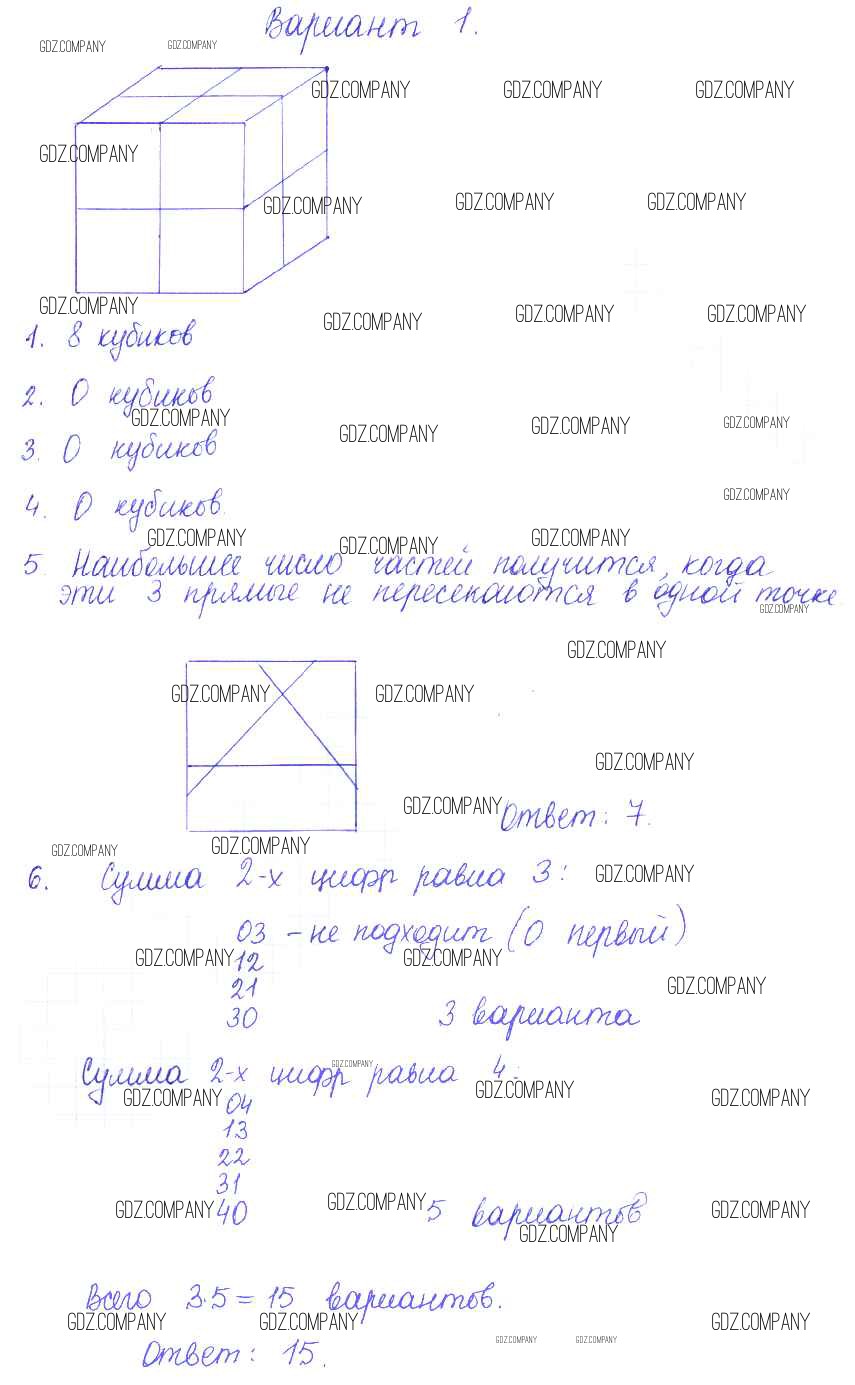 Вариант 1.
GDZ.COMPANY GDZ.COMPANY
GDZ.COMPANY GDZ.COMPANY GDZ.COMPANY
GDZ.COMPANY
GDZ.COMPANY GDZ.COMPANY GDZ.COMPANY
GDZ.COMPANY GDZ.COMPANY GDZ.COMPANY GDZ.COMPANY
1. 8 кубиков
2. 0 кубиков
GDZ.COMPANY GDZ.COMPANY GDZ.COMPANY GDZ.COMPANY
3. 0 кубиков
GDZ.COMPANY
4. 0 кубиков.
GDZ.COMPANY GDZ.COMPANY GDZ.COMPANY
5. Наибольшее число частей получится, когда
эти 3 прямые не пересекаются в одной точке.
GDZ.COMPANY
GDZ.COMPANY
GDZ.COMPANY GDZ.COMPANY
GDZ.COMPANY
GDZ.COMPANY Ответ: 7.
GDZ.COMPANY GDZ.COMPANY
6. Сумма 2-х цифр равна 3: GDZ.COMPANY
03 – не подходит (0 первый)
GDZ.COMPANY 12 GDZ.COMPANY
21 GDZ.COMPANY
30 3 варианта
GDZ.COMPANY
Сумма 2-х цифр равна 4:
GDZ.COMPANY 04 GDZ.COMPANY GDZ.COMPANY
13
22
31
GDZ.COMPANY 40 GDZ.COMPANY 5 вариантов GDZ.COMPANY
GDZ.COMPANY
Всего 3·5 = 15 вариантов.
GDZ.COMPANY GDZ.COMPANY GDZ.COMPANY
Ответ: 15.
GDZ.COMPANY GDZ.COMPANY